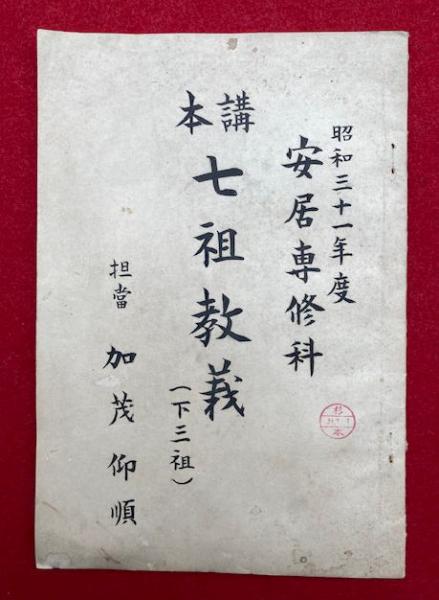 昭和三十一年度
安居専修科
講本 七祖教義
(下三祖)
担當 加茂仰順
杉本